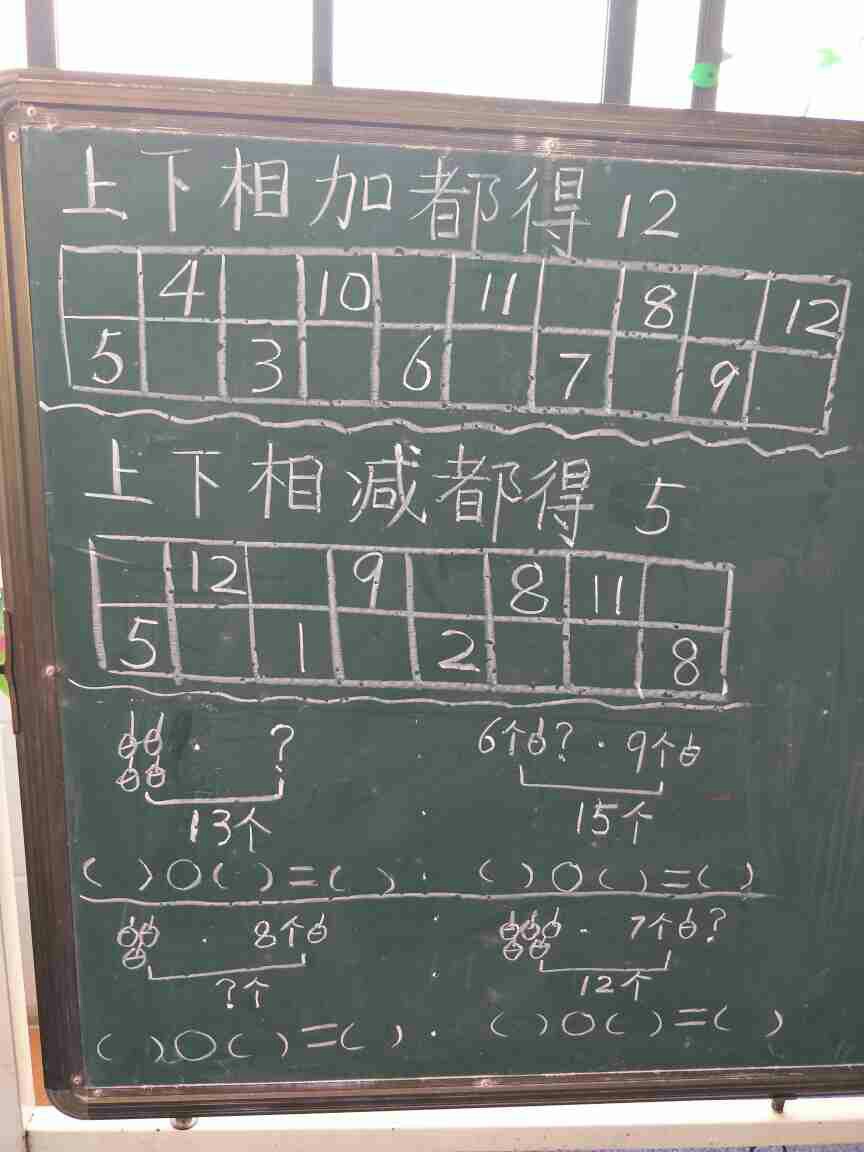 上下相加都得12
4 10 11 8 12
5 3 6 7 9
上下相减都得 5
12 9 8 11
5 1 2 8
? 6个?·9个
13个 15个
( )○( )=( ) ( )○( )=( )
8个 7个?
?个 12个
( )○( )=( ) ( )○( )=( )